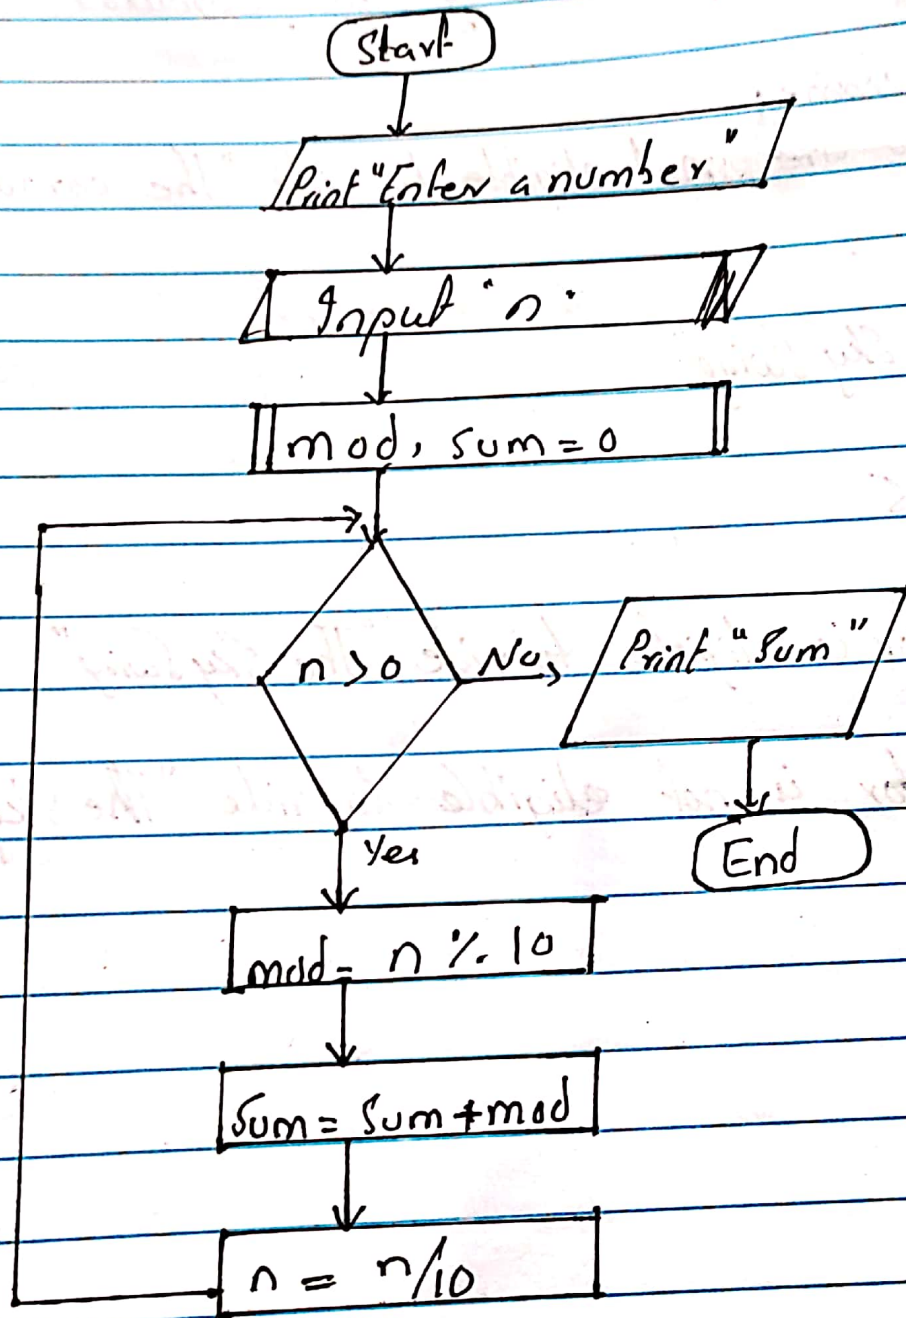 Start
Print "Enter a number"
Input "n"
mod, sum = 0
n > 0
No
Print "Sum"
End
Yes
mod = n % 10
Sum = Sum + mod
n = n/10